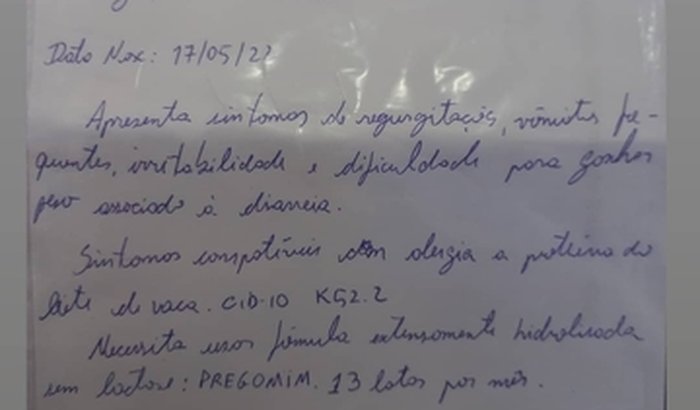 Data Nasc: 17/05/22
Apresenta sintomas de regurgitações, vômitos fre-
quentes, irritabilidade e dificuldade para ganhar
peso associado à diarreia.
Sintomas compatíveis com alergia a proteína do
leite de vaca. CID-10 K52.2
Necessita usar fórmula extensamente hidrolisada
sem lactose: PREGOMIM. 13 latas por mês.